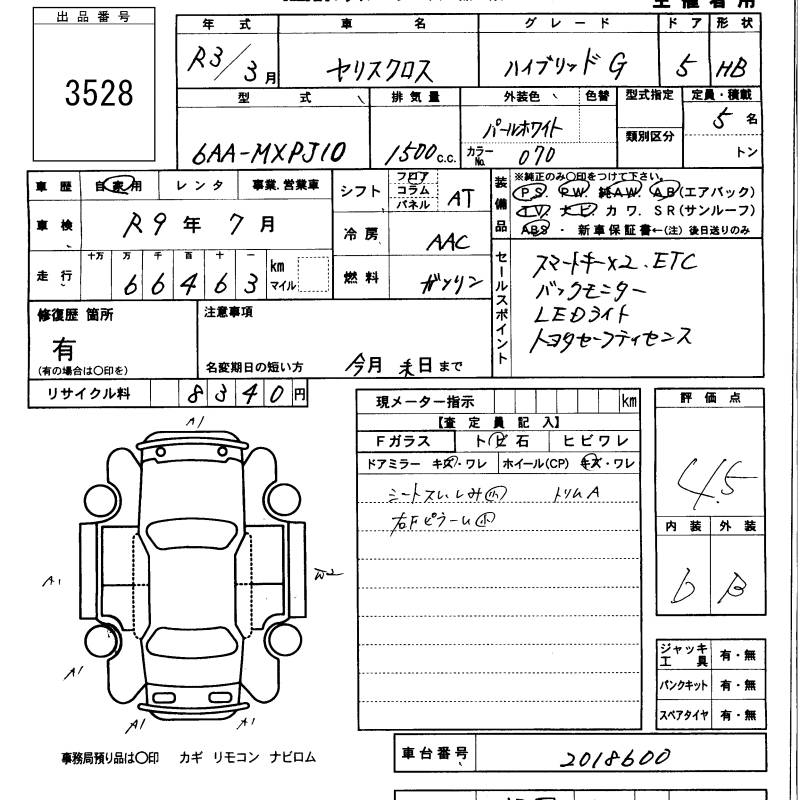 出品番号
3528
年式 車名 グレード ドア 形状
R3/3月 ヤリスクロス ハイブリッドG 5 HB
型式 排気量 外装色 色替 型式指定 定員・積載
6AA-MXPJ10 1500c.c. パールホワイト 類別区分 5名
カラーNo. 070 トン
車歴 自家用 レンタ 事業.営業車
車検 R9年7月
走行 十万 万 千 百 十 一
66463 km マイル
シフト フロア コラム パネル AT
冷房 AAC
燃料 ガソリン
装備品
※純正のみ〇印をつけて下さい。
PS. PW. 純AW. AB(エアバック)
TV. ナビ. カワ. SR(サンルーフ)
ABS ・ 新車保証書←(注) 後日送りのみ
セールスポイント
スマートキー×2. ETC
バックモニター
LEDライト
トヨタセーフティセンス
修復歴 箇所
有
(有の場合は〇印を)
注意事項
名変期日の短い方 今月末日まで
リサイクル料 8340円
現メーター指示 km
【査定員記入】
Fガラス トビ石 ヒビワレ
ドアミラー キズ・ワレ ホイール(CP) キズ・ワレ
シートスレ、シミ小 トリムA
右Fピラーム小
評価点
4.5
内装 外装
b B
A1
A1 W2
A1
A1 A1
ジャッキ工具 有・無
パンクキット 有・無
スペアタイヤ 有・無
事務局預り品は〇印 カギ リモコン ナビロム
車台番号 2018600